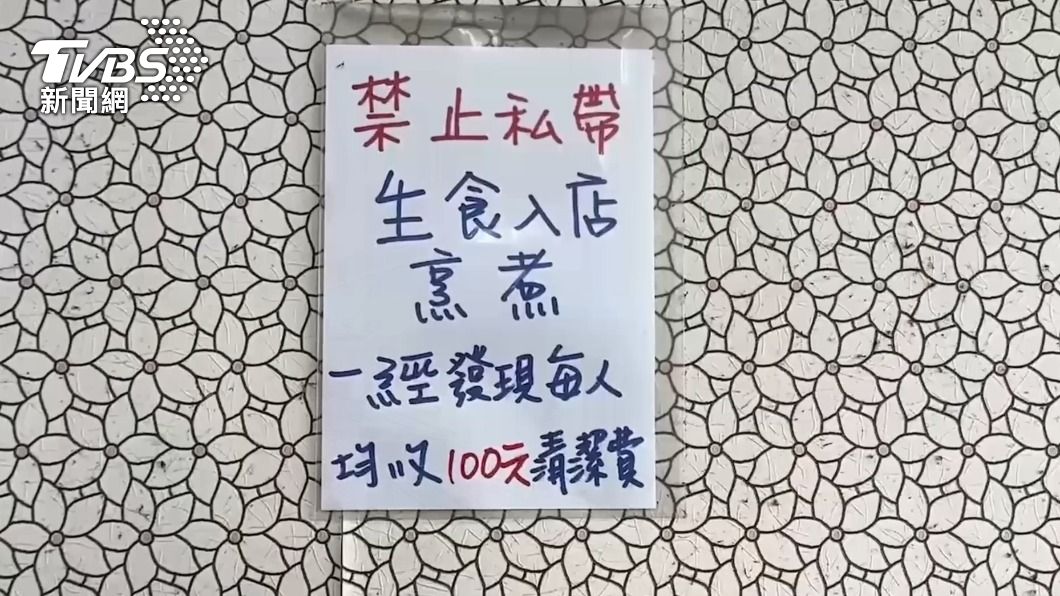 TVBS
新聞網
禁止私帶
生食入店
烹煮
一經發現每人
均收100元清潔費